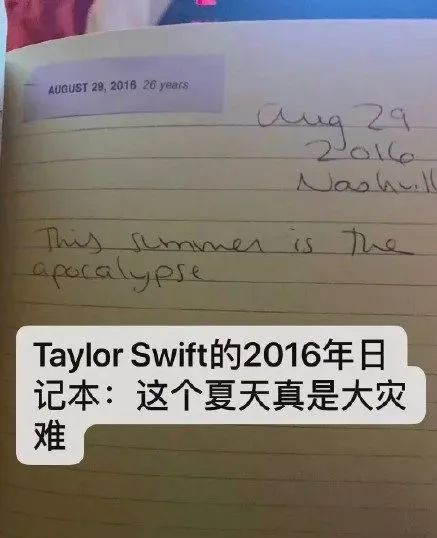 AUGUST 29, 2016 26 years
Aug 29
2016
Nashvill
This summer is the
apocalypse
Taylor Swift的2016年日
记本：这个夏天真是大灾
难